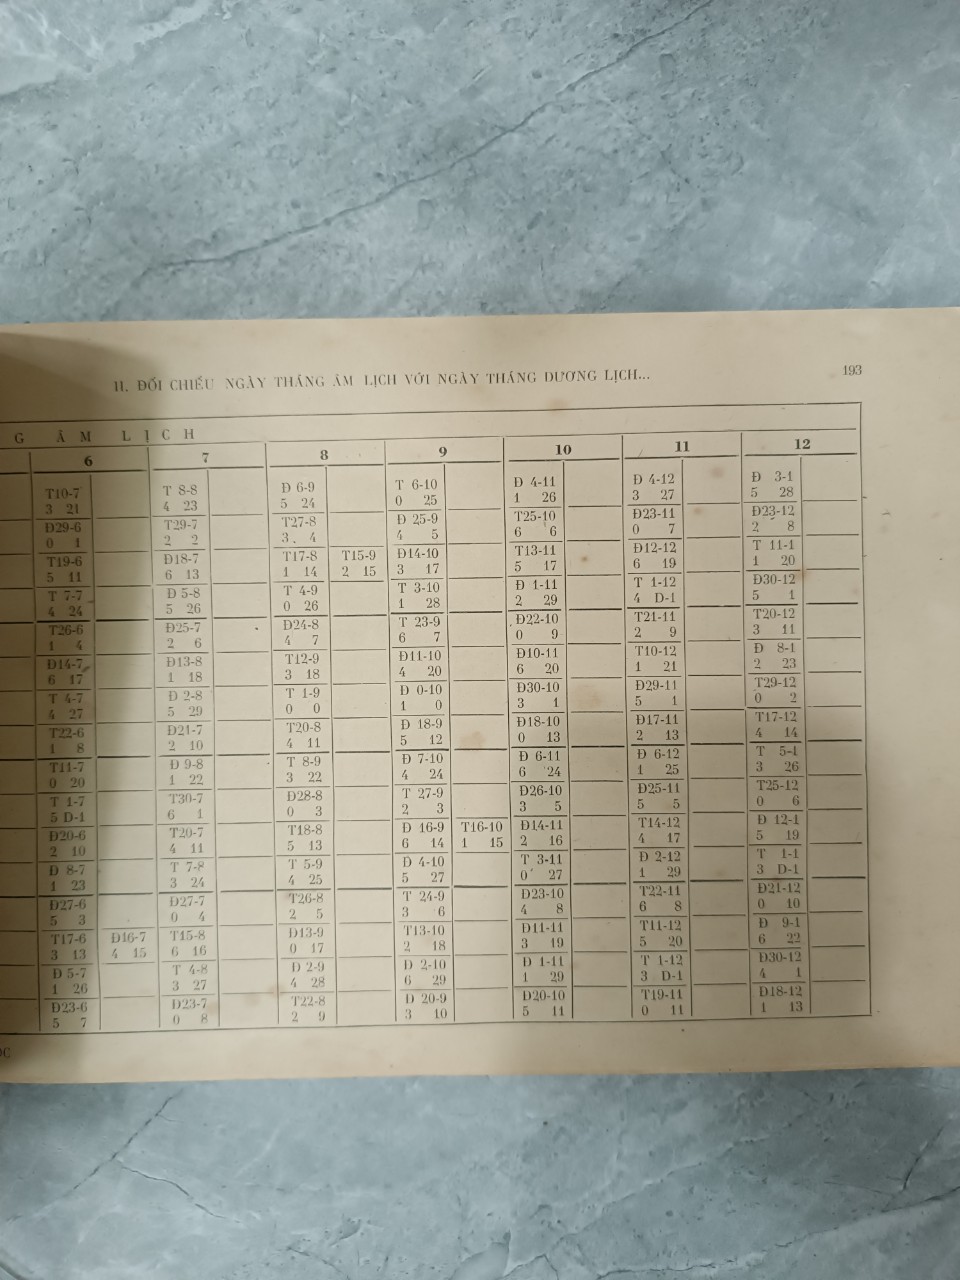 II. ĐỐI CHIẾU NGÀY THÁNG ÂM LỊCH VỚI NGÀY THÁNG DƯƠNG LỊCH... 193
G ÂM LỊCH
6 7 8 9 10 11 12
T10-7 T 8-8 Đ 6-9 T 6-10 Đ 4-11 Đ 4-12 Đ 3-1
3 21 4 23 5 24 0 25 1 26 3 27 5 28
Đ29-6 T29-7 T27-8 Đ 25-9 T25-10 Đ23-11 Đ23-12
0 1 2 2 3 4 4 5 6 6 0 7 2 8
T19-6 Đ18-7 T17-8 T15-9 Đ14-10 T13-11 Đ12-12 T 11-1
5 11 6 13 1 14 2 15 3 17 5 17 6 19 1 20
T 7-7 Đ 5-8 T 4-9 T 3-10 Đ 1-11 T 1-12 Đ30-12
4 24 5 26 0 26 1 28 2 29 4 D-1 5 1
T26-6 Đ25-7 Đ24-8 T 23-9 Đ22-10 T21-11 T20-12
1 4 2 6 4 7 6 7 0 9 2 9 3 11
Đ14-7 Đ13-8 T12-9 Đ11-10 Đ10-11 T10-12 Đ 8-1
6 17 1 18 3 18 4 20 6 20 1 21 2 23
T 4-7 Đ 2-8 T 1-9 Đ 0-10 Đ30-10 Đ29-11 T29-12
4 27 5 29 0 0 1 0 3 1 5 1 0 2
T22-6 Đ21-7 T20-8 Đ 18-9 Đ18-10 Đ17-11 T17-12
1 8 2 10 4 11 5 12 0 13 2 13 4 14
T11-7 Đ 9-8 T 8-9 Đ 7-10 Đ 6-11 Đ 6-12 T 5-1
0 20 1 22 3 22 4 24 6 24 1 25 3 26
T 1-7 T30-7 Đ28-8 T 27-9 Đ26-10 Đ25-11 T25-12
5 D-1 6 1 0 3 2 3 3 5 5 5 0 6
Đ20-6 T20-7 T18-8 Đ 16-9 T16-10 Đ14-11 T14-12 Đ 12-1
2 10 4 11 5 13 6 14 1 15 2 16 4 17 5 19
Đ 8-7 T 7-8 T 5-9 Đ 4-10 T 3-11 Đ 2-12 T 1-1
1 23 3 24 4 25 5 27 0 27 1 29 3 D-1
Đ27-6 Đ27-7 T26-8 T 24-9 Đ23-10 T22-11 Đ21-12
5 3 0 4 2 5 3 6 4 8 6 8 0 10
T17-6 Đ16-7 T15-8 Đ13-9 T13-10 Đ11-11 T11-12 Đ 9-1
3 13 4 15 6 16 0 17 2 18 3 19 5 20 6 22
Đ 5-7 T 4-8 Đ 2-9 Đ 2-10 Đ 1-11 T 1-12 Đ30-12
1 26 3 27 4 28 6 29 1 29 3 D-1 4 1
Đ23-6 Đ23-7 T22-8 Đ 20-9 Đ20-10 T19-11 Đ18-12
5 7 0 8 2 9 3 10 5 11 0 11 1 13